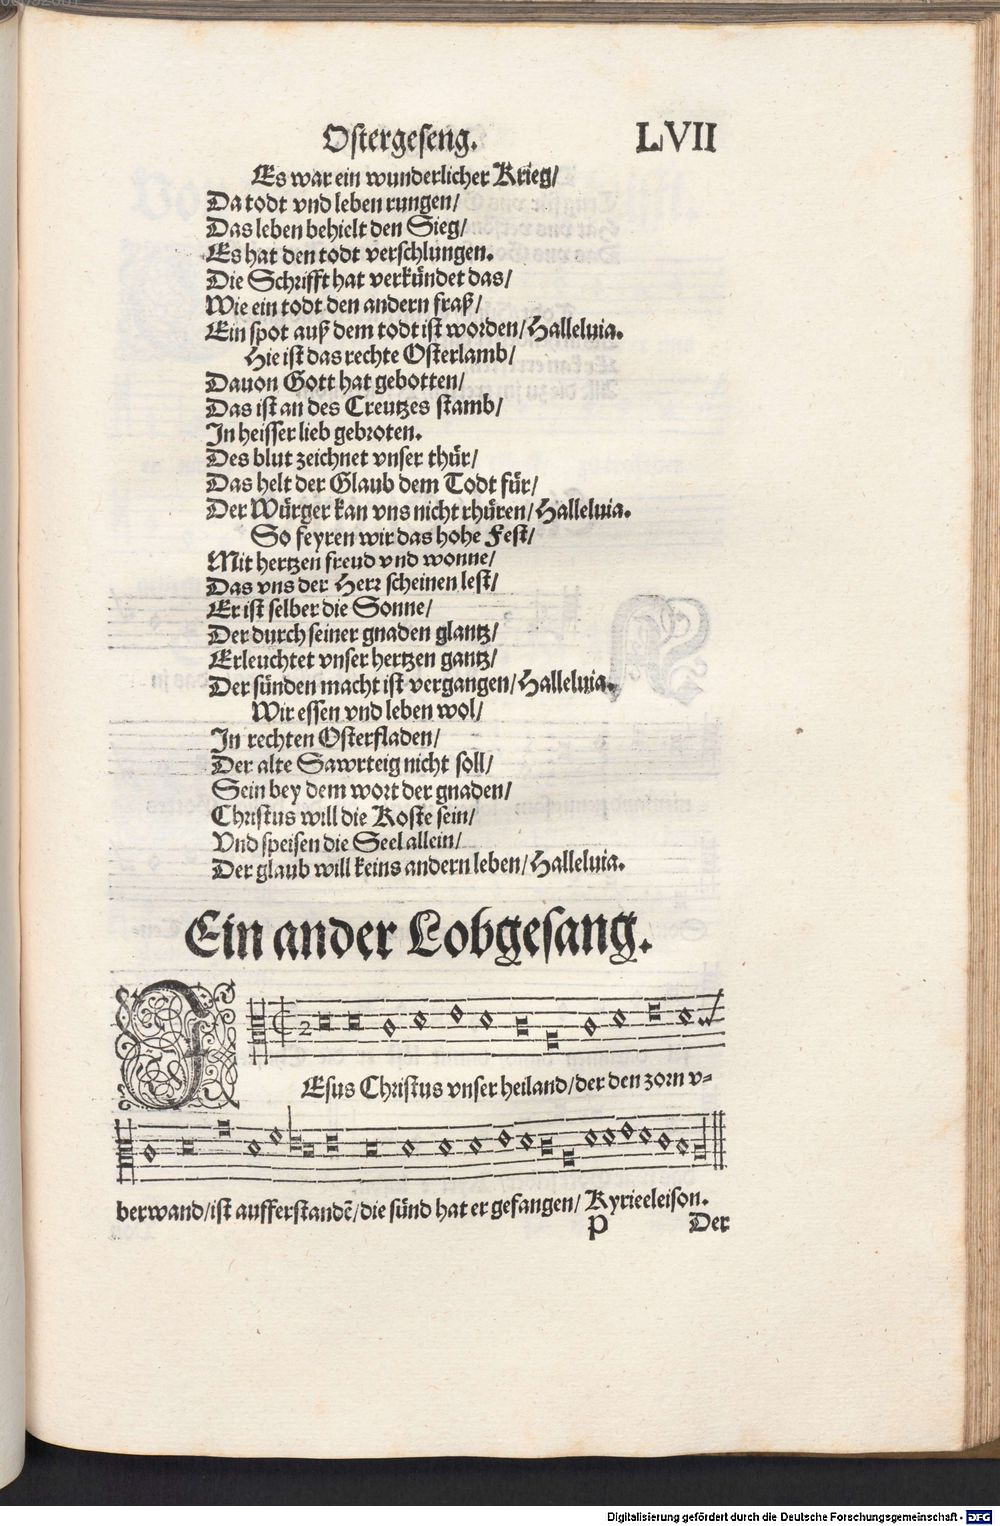 Ostergeseng. LVII
Es war ein wunderlicher Krieg/
Da todt vnd leben rungen/
Das leben behielt den Sieg/
Es hat den todt verschlungen.
Die Schrifft hat verkündet das/
Wie ein todt den andern fraß/
Ein spot auß dem todt ist worden/ Halleluia.
Hie ist das rechte Osterlamb/
Dauon Gott hat gebotten/
Das ist an des Creutzes stamb/
In heisser lieb gebroten.
Des blut zeichnet vnser thür/
Das helt der Glaub dem Todt für/
Der Würger kan vns nicht rhüren/ Halleluia.
So feyren wir das hohe Fest/
Mit hertzen freud vnd wonne/
Das vns der Herr scheinen lest/
Er ist selber die Sonne/
Der durch seiner gnaden glantz/
Erleuchtet vnser hertzen gantz/
Der sünden macht ist vergangen/ Halleluia.
Wir essen vnd leben wol/
In rechten Osterfladen/
Der alte Sawrteig nicht soll/
Sein bey dem wort der gnaden/
Christus will die Koste sein/
Vnd speisen die Seel allein/
Der glaub will keins andern leben/ Halleluia.
Ein ander Lobgesang.
JEsus Christus vnser heiland/ der den zorn v=
berwand/ ist aufferstandē/ die sünd hat er gefangen/ Kyrieeleison.
P Der
Digitalisierung gefördert durch die Deutsche Forschungsgemeinschaft - DFG